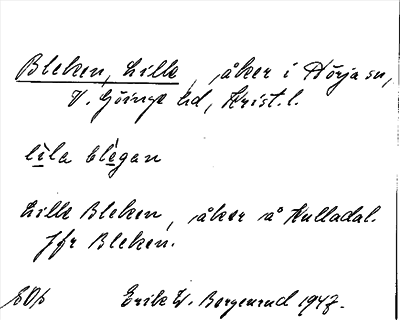 Bleken, Lille, åker i Hörja sn,
V. Göinge hd, Krist. l.
lila blegan
Lille Bleken, åker å Kulladal.
Jfr Bleken.
Erik W. Bergenrud 1947.